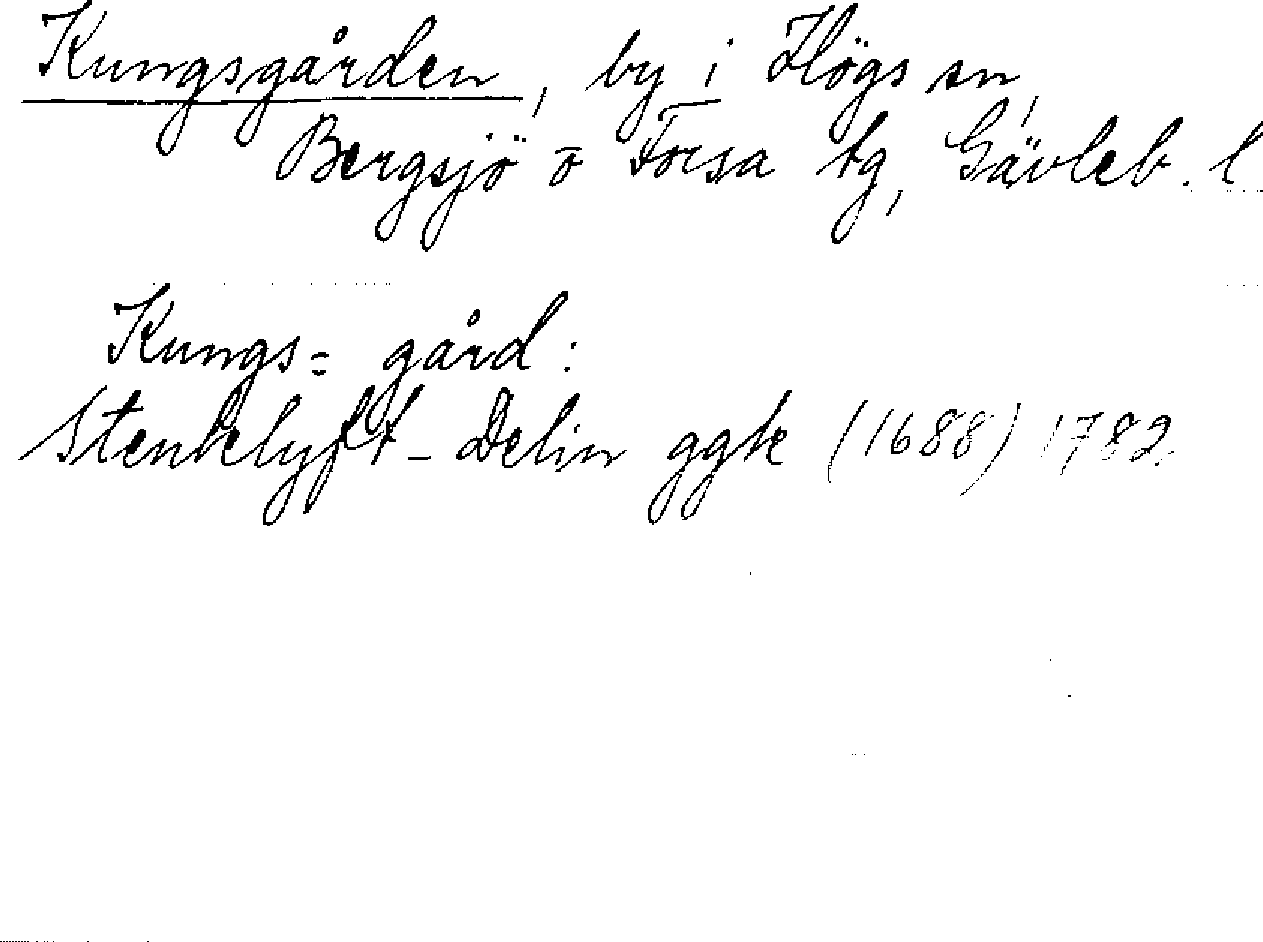 Kungsgården, by i Högs sn,
Bergsjö o Forsa tg, Gävleb. l
Kungs= gård:
Stenklyft - Delin ggk (1688) 1782.